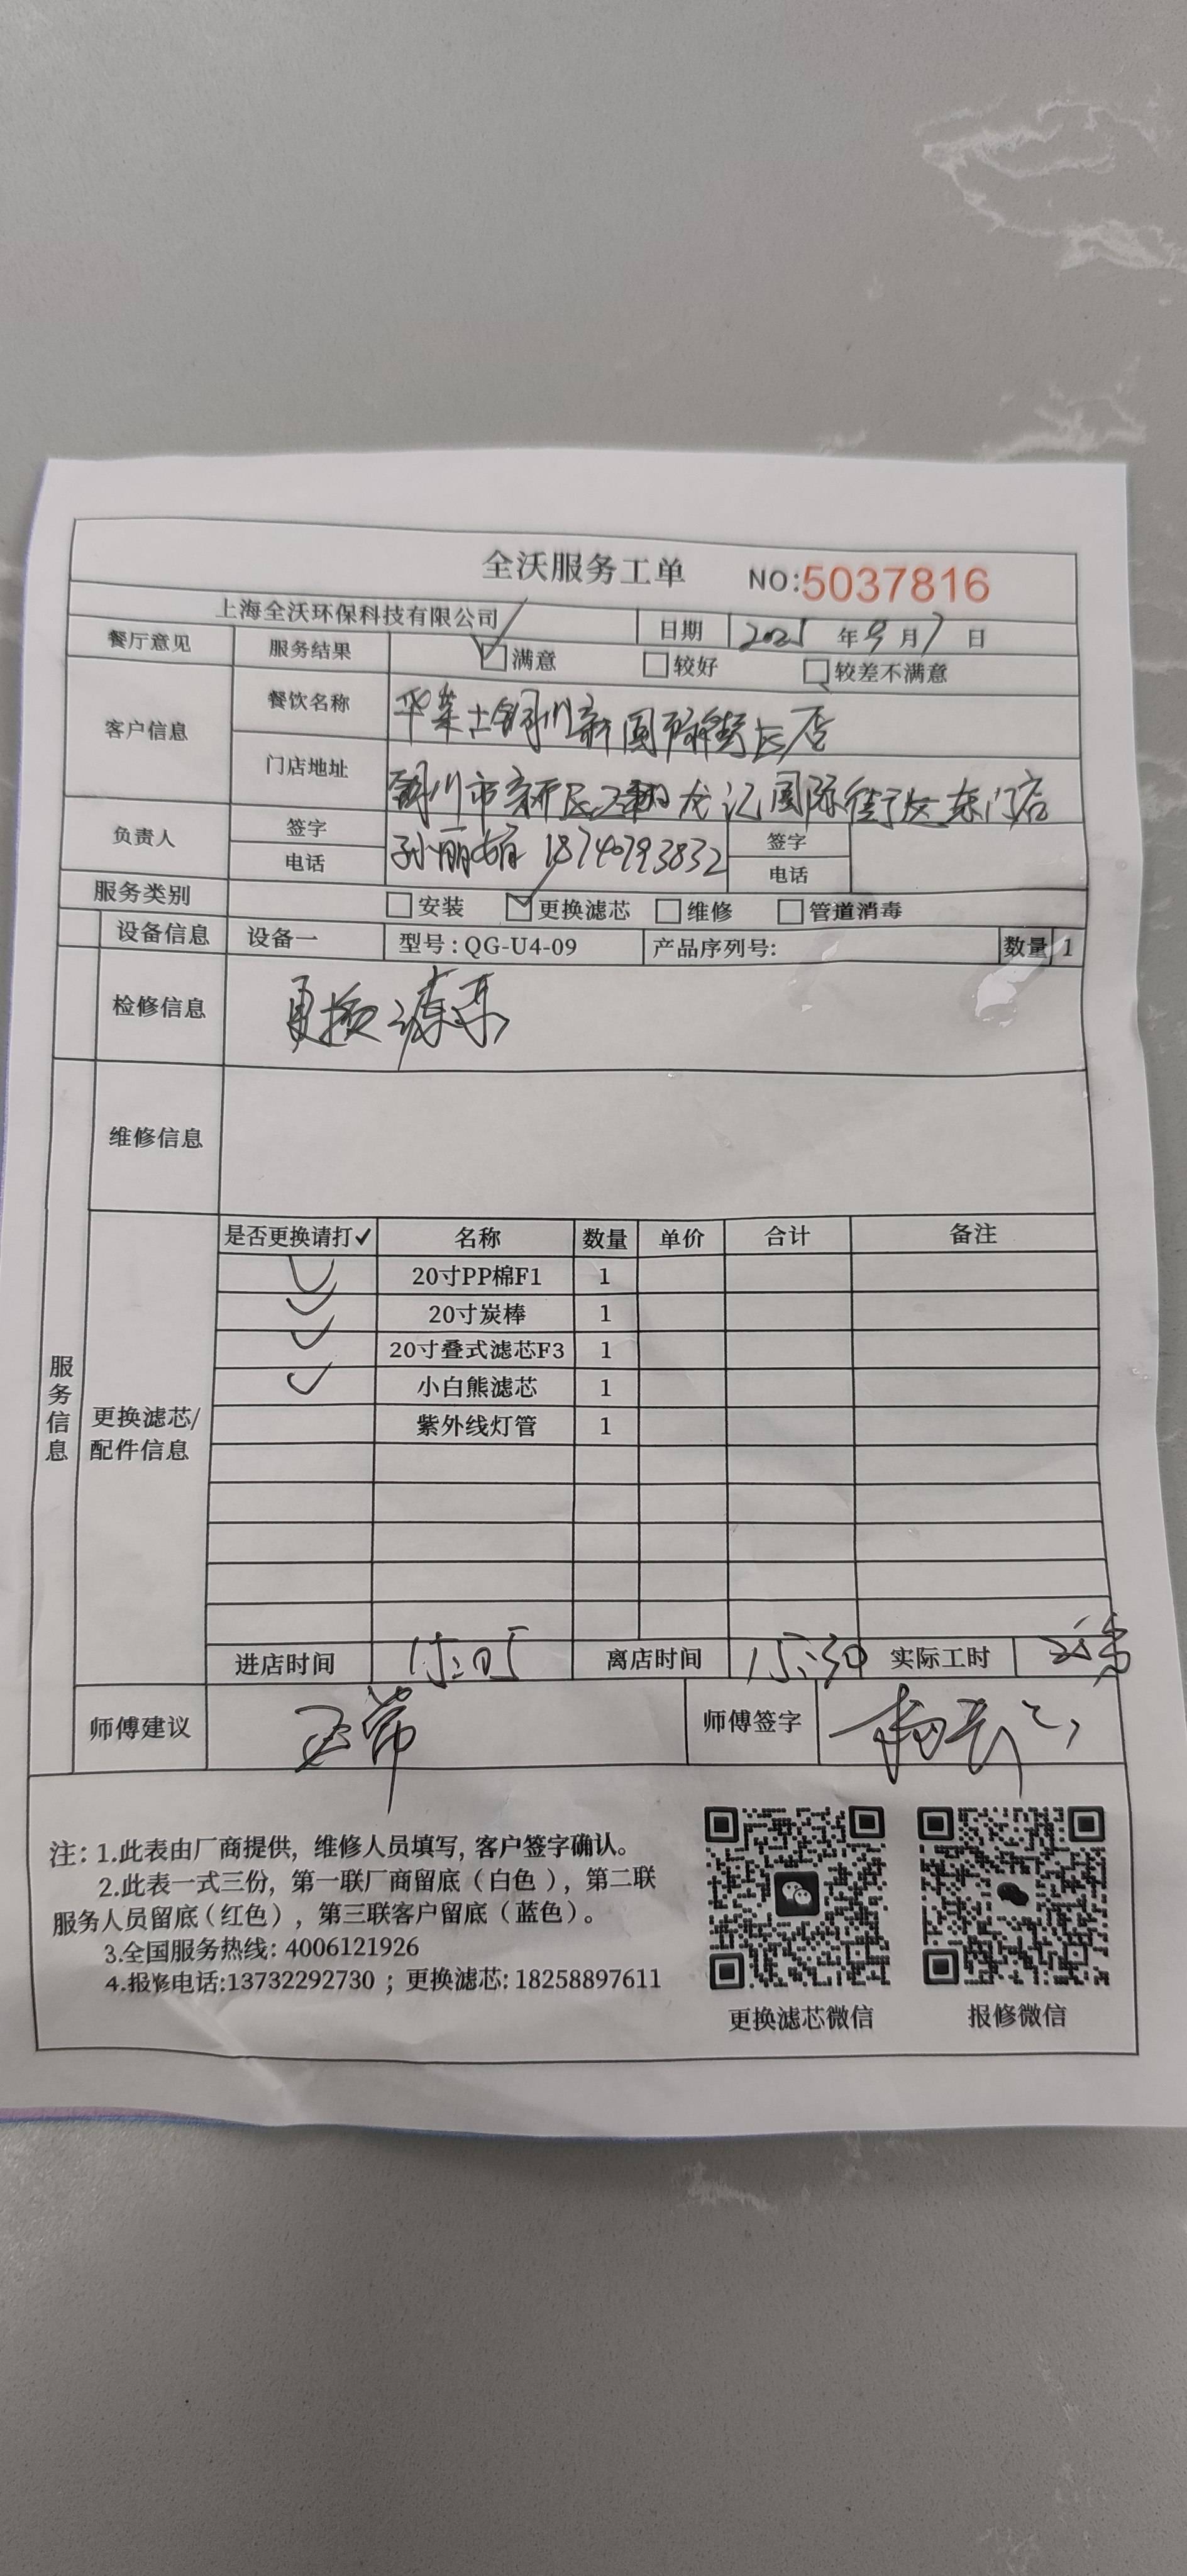 全沃服务工单 NO:5037816
上海全沃环保科技有限公司 日期 2025年9月7日
餐厅意见 服务结果 ☑满意 □较好 □较差不满意
客户信息 餐饮名称 华莱士铜川新国际街区店
门店地址 铜川市新区 龙记国际街区东门店
负责人 签字 孙丽 签字
电话 18740793832 电话
服务类别 □安装 ☑更换滤芯 □维修 □管道消毒
设备信息 设备一 型号:QG-U4-09 产品序列号: 数量 1
检修信息 更换滤芯
维修信息
服务信息
更换滤芯/配件信息
是否更换请打✓ 名称 数量 单价 合计 备注
✓ 20寸PP棉F1 1
✓ 20寸炭棒 1
✓ 20寸叠式滤芯F3 1
✓ 小白熊滤芯 1
紫外线灯管 1
进店时间 15:05 离店时间 15:30 实际工时
师傅建议 正常 师傅签字
注:1.此表由厂商提供,维修人员填写,客户签字确认。
2.此表一式三份,第一联厂商留底(白色),第二联
服务人员留底(红色),第三联客户留底(蓝色)。
3.全国服务热线:4006121926
4.报修电话:13732292730;更换滤芯:18258897611
更换滤芯微信 报修微信